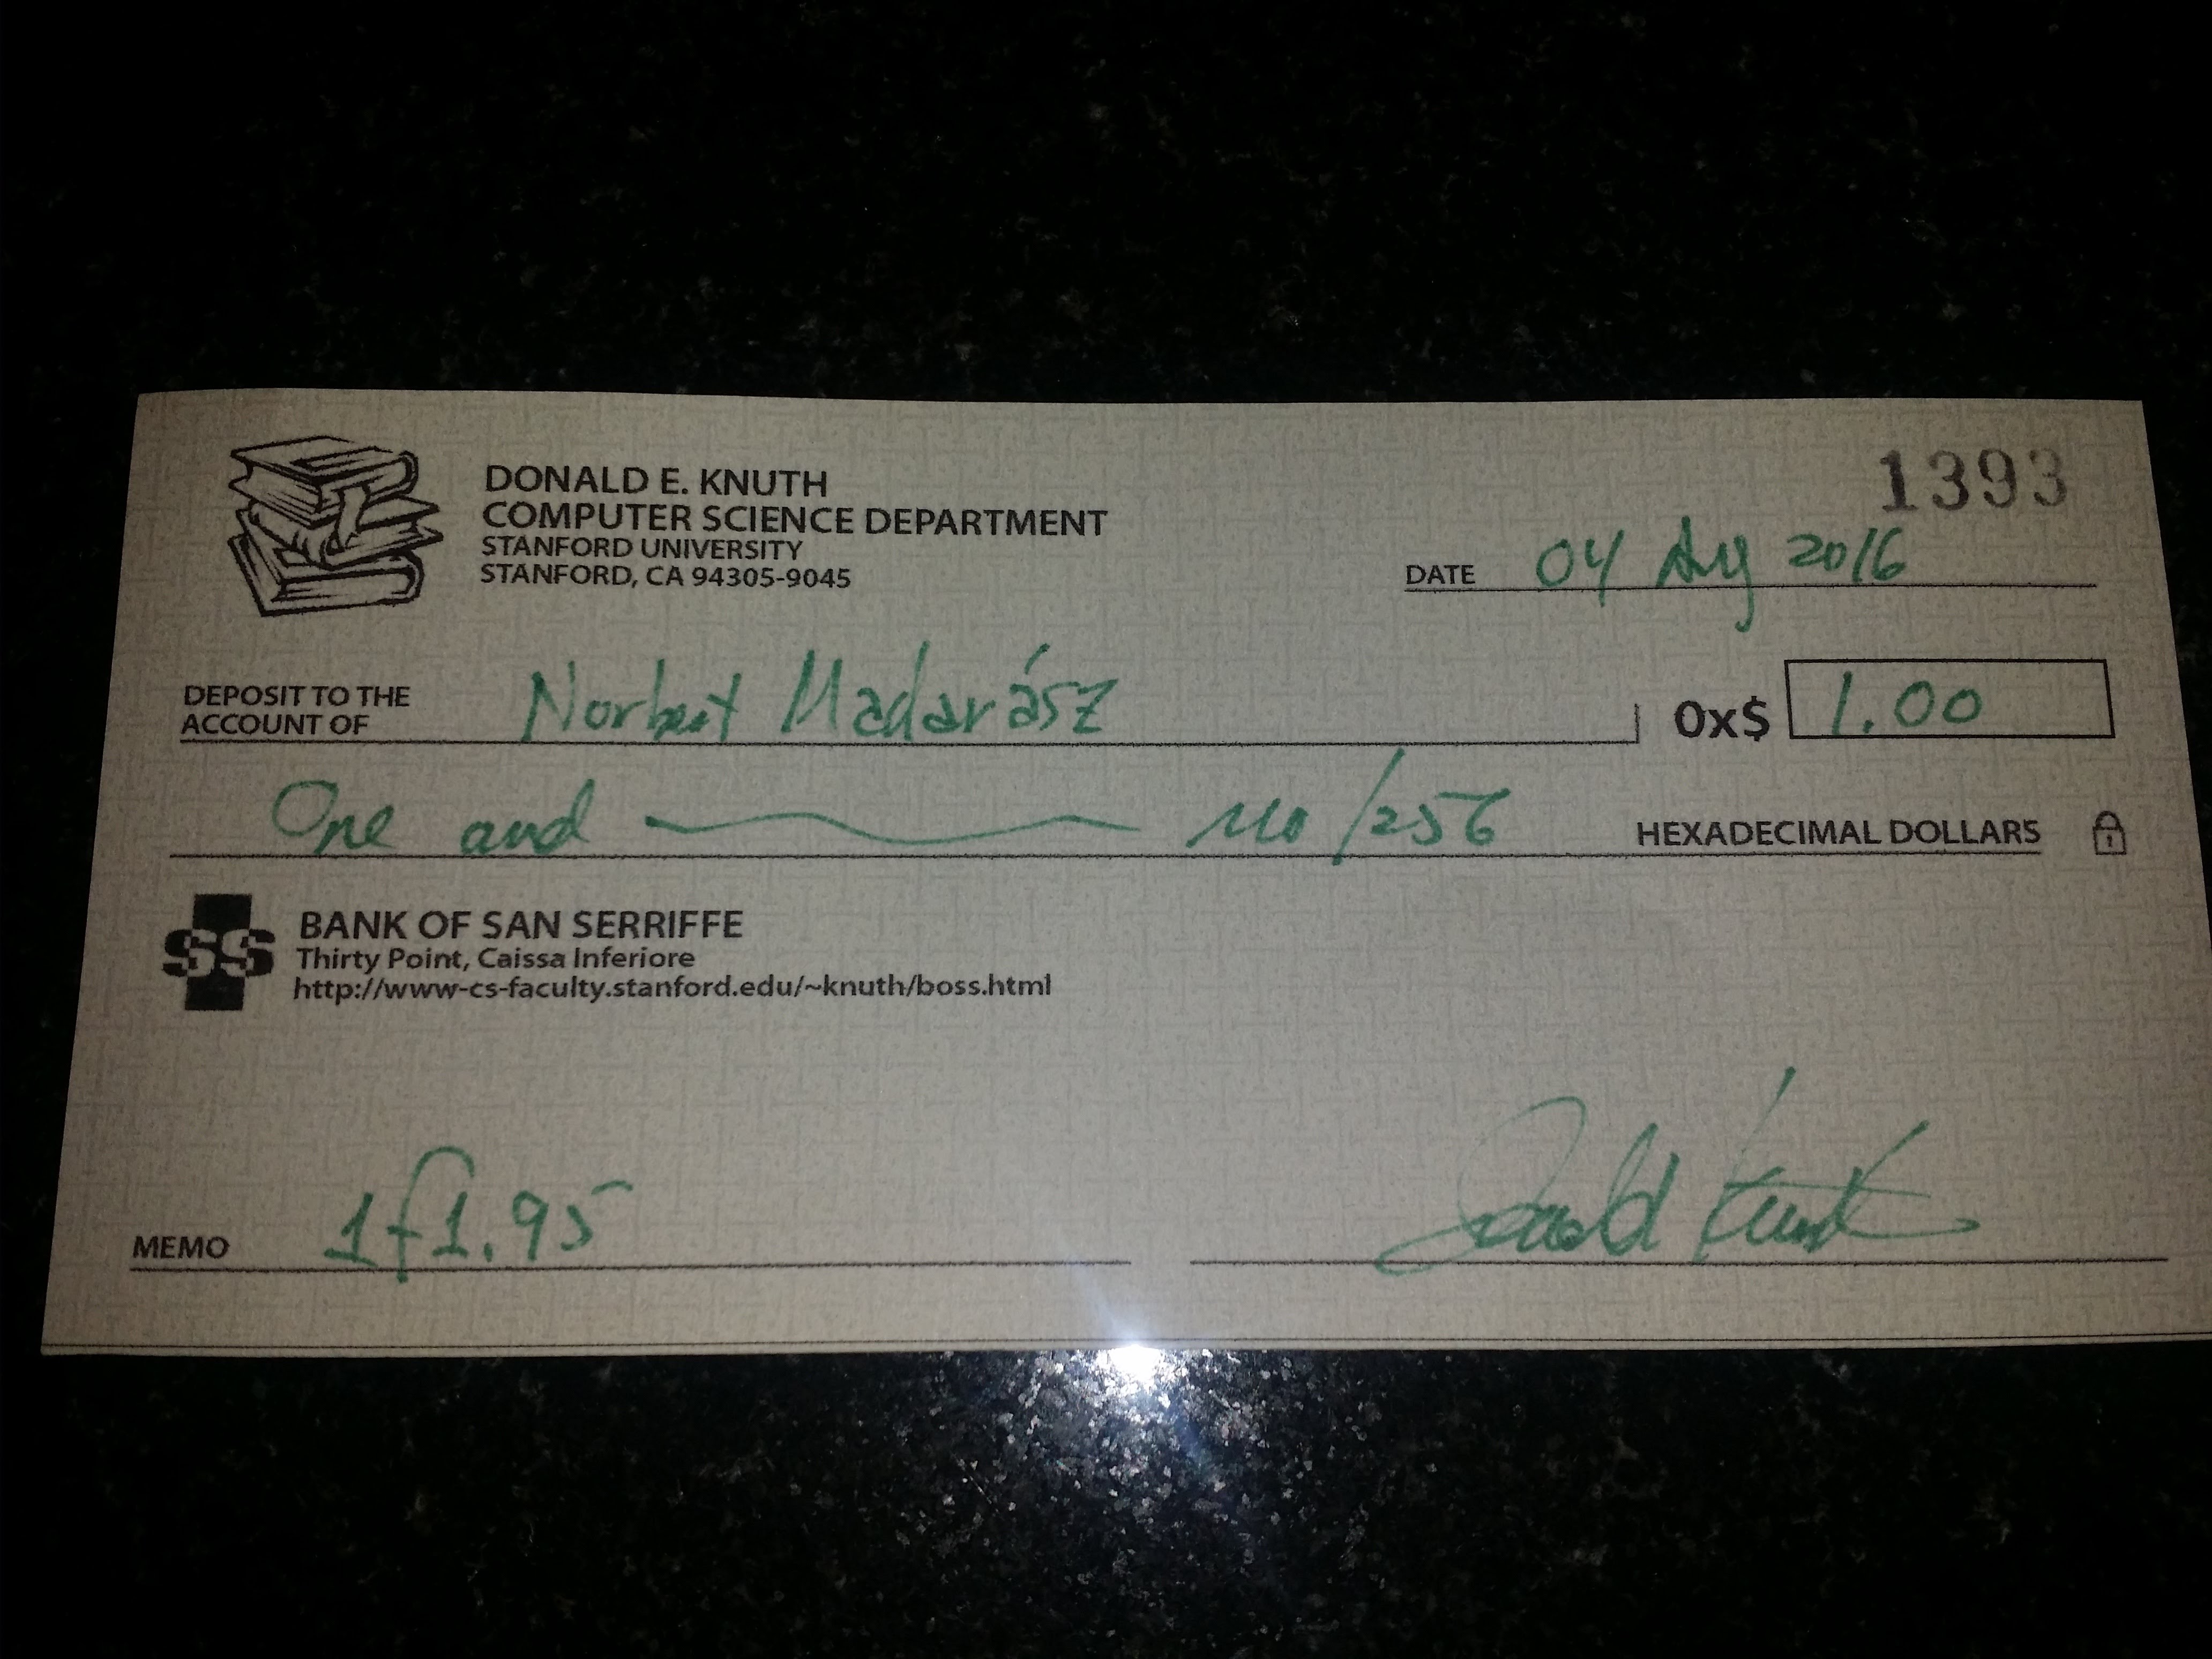 DONALD E. KNUTH
COMPUTER SCIENCE DEPARTMENT
STANFORD UNIVERSITY
STANFORD, CA 94305-9045
1393
DATE 04 Aug 2016
DEPOSIT TO THE
ACCOUNT OF Norbert Madarász
0x$ 1.00
One and no/256 HEXADECIMAL DOLLARS
SS
BANK OF SAN SERRIFFE
Thirty Point, Caissa Inferiore
http://www-cs-faculty.stanford.edu/~knuth/boss.html
MEMO 1f1.95
Donald Knuth